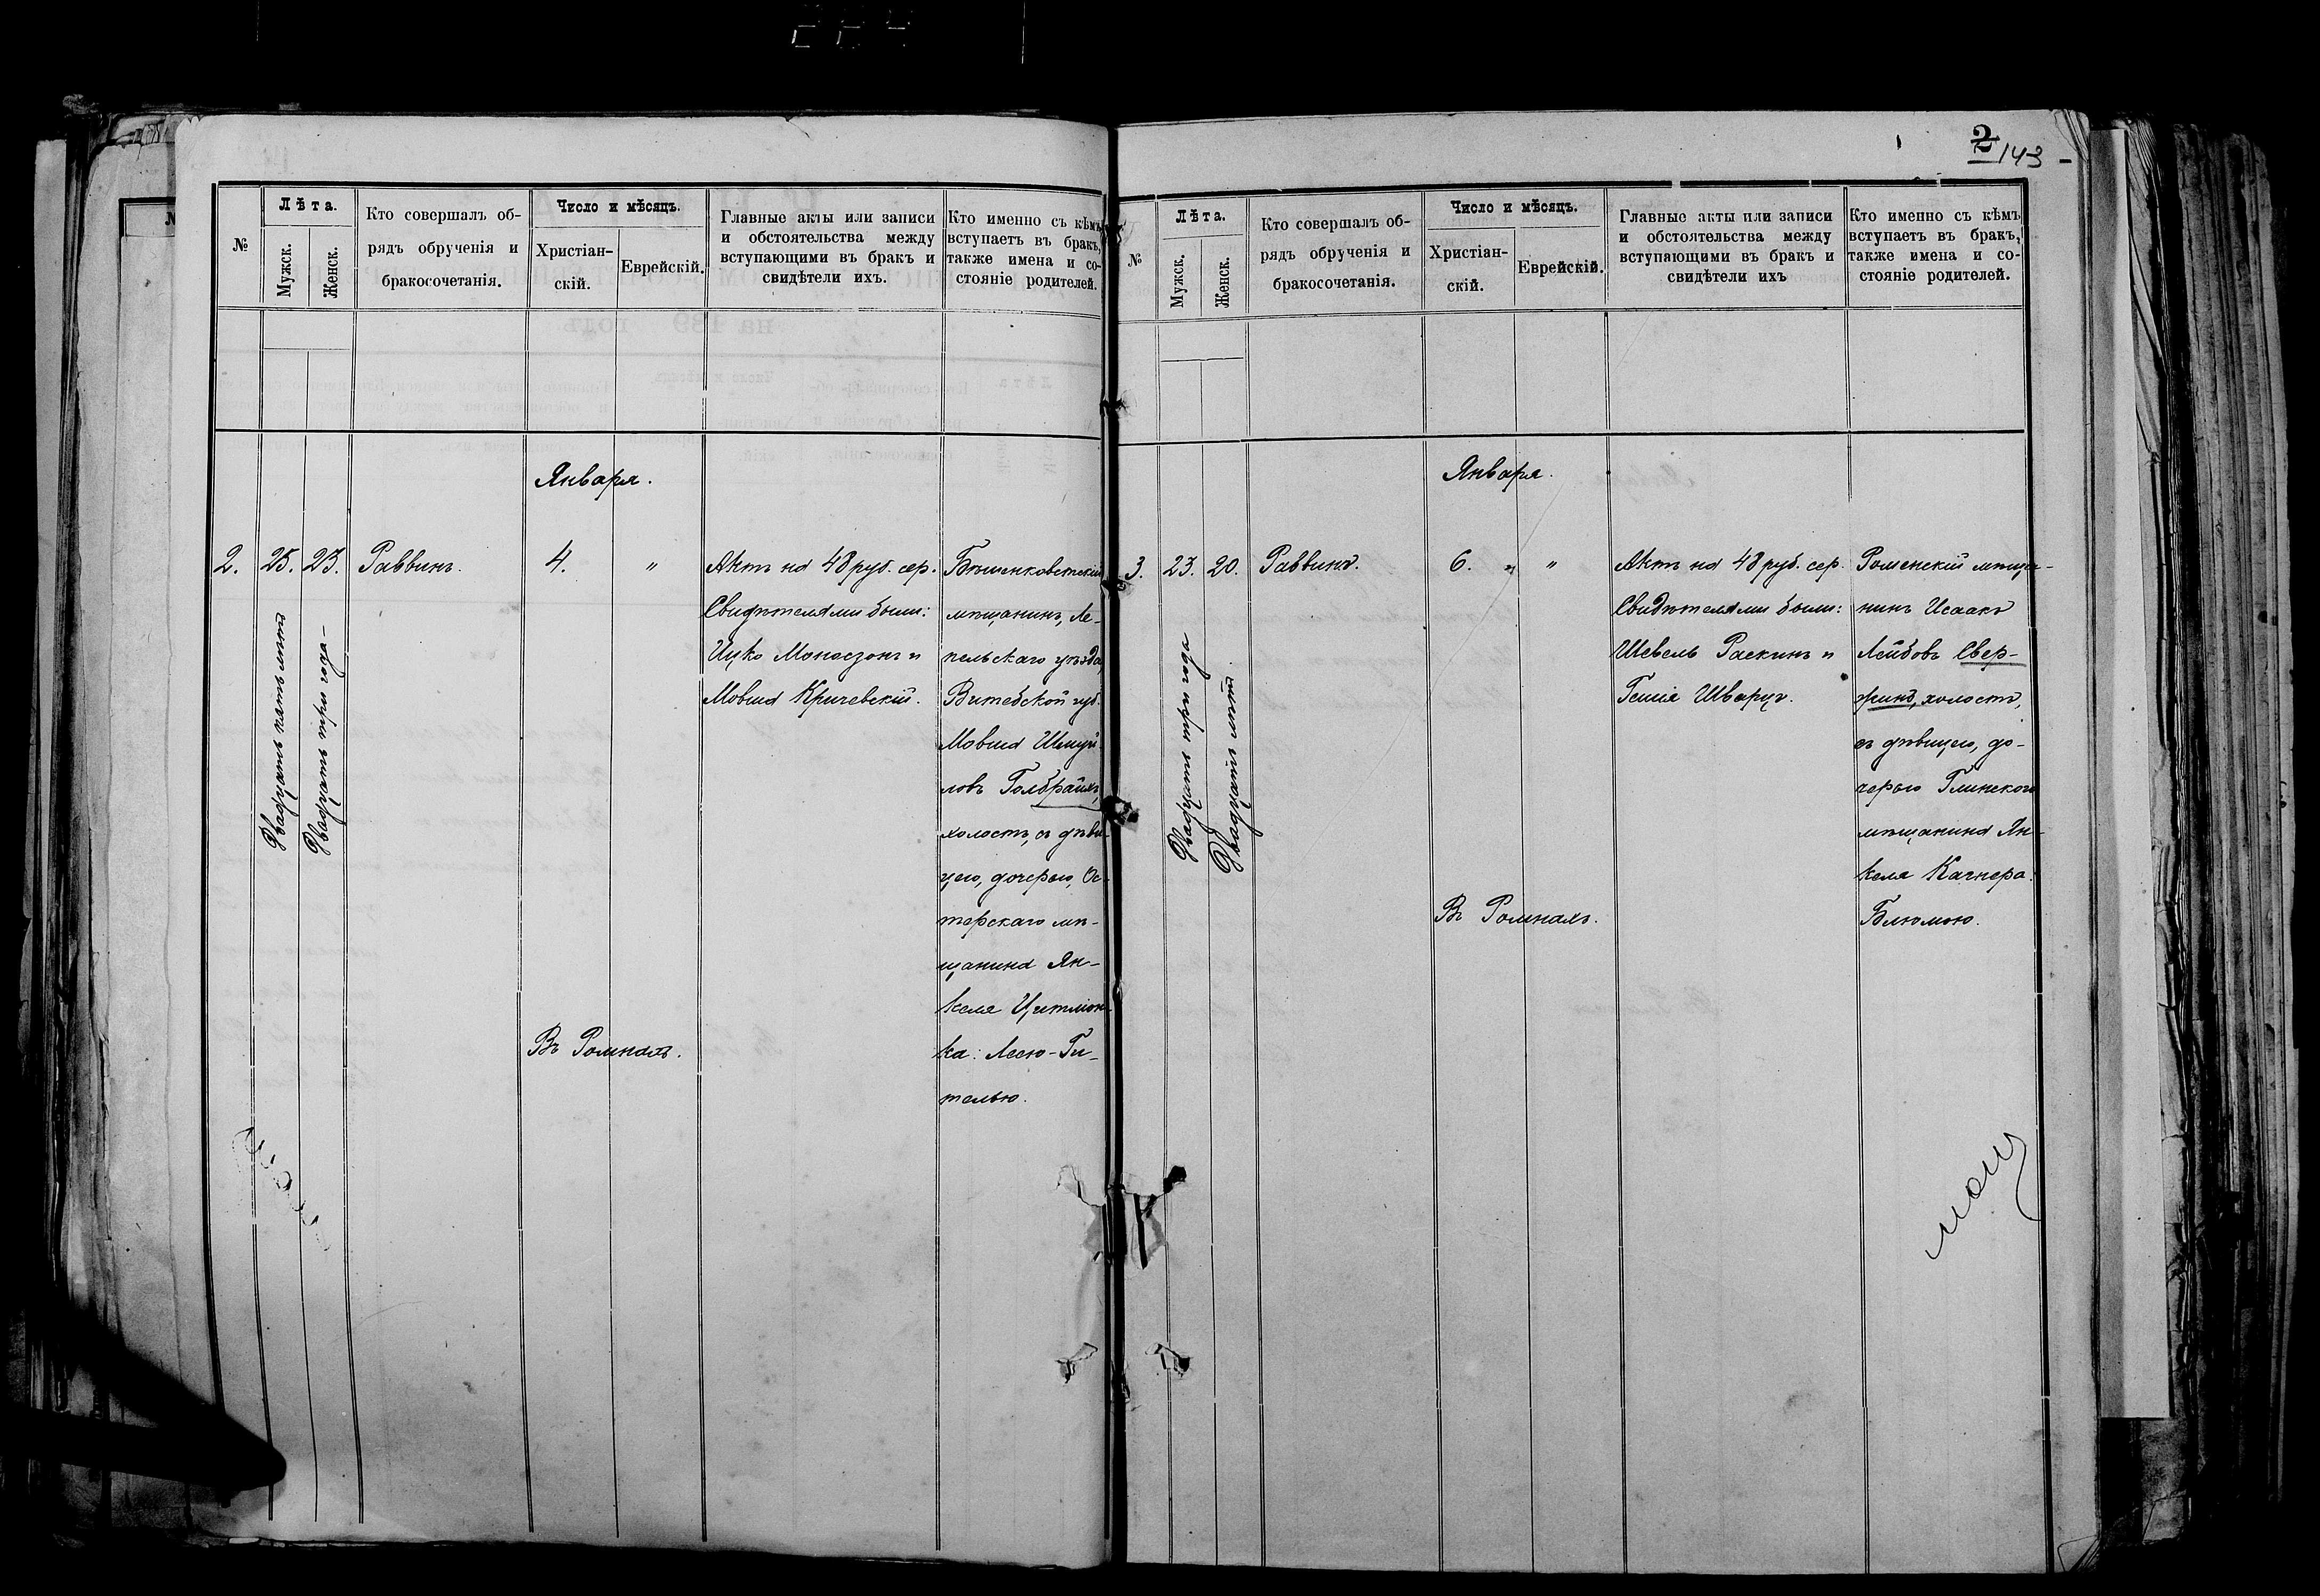 224
№
Лѣта.
Мужск.
Женск.
Кто совершалъ об-
рядъ обрученія и
бракосочетанія.
Число и мѣсяцъ.
Христіан-
скій.
Еврейскій.
Главные акты или записи
и обстоятельства между
вступающими въ бракъ и
свидѣтели ихъ.
Кто именно съ кѣмъ
вступаетъ въ бракъ,
также имена и со-
стояніе родителей.
Января.
2.
25.
23.
Двадцать пять лѣтъ
Двадцать три года
Раввинъ.
4.
"
Актъ на 48 руб. сер.
Свидѣтелями были:
Ицко Монасзонъ и
Мовша Кричевскій.
Бѣшенковетскій
мѣщанинъ, Ле-
пельскаго уѣзда,
Витебской губ.
Мовша Шмуй-
ловъ Голбрайхъ,
холостъ, съ дѣви-
цею, дочерью, Ос-
терскаго мѣ-
щанина Ян-
келя Цитлон-
ка: Лесю-Ги-
телью.
Въ Ромнахъ.
2
143
№
Лѣта.
Мужск.
Женск.
Кто совершалъ об-
рядъ обрученія и
бракосочетанія.
Число и мѣсяцъ.
Христіан-
скій.
Еврейскій.
Главные акты или записи
и обстоятельства между
вступающими въ бракъ и
свидѣтели ихъ
Кто именно съ кѣмъ
вступаетъ въ бракъ,
также имена и со-
стояніе родителей.
Января.
3.
23.
20.
Двадцать три года
Двадцать лѣтъ.
Раввинъ.
6. "
"
Актъ на 48 руб. сер.
Свидѣтелями были:
Шевель Раскинъ и
Гешія Шварцъ.
Роменскій мѣща-
нинъ Исаакъ
Лейбовъ Свер-
жинъ, холостъ,
съ дѣвицею, до-
черью Глинского
мѣщанина Ян-
келя Качнера:
Блюмою.
Въ Ромнахъ.